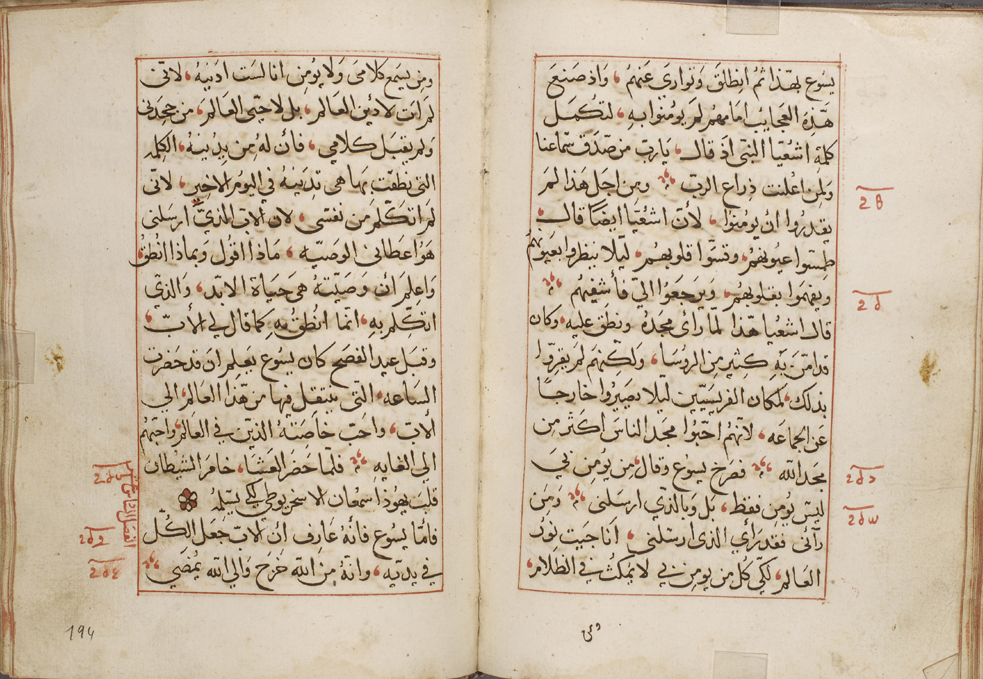 يسوع بهذا ثم انطلق وتوارى عنهم ، واذ صنع
هذه العجايب امامهم لم يومنوا به ، لتكمل
كلمة اشعيا النبي اذ قال ، يارب من صدق سماعنا
ولمن اعلنت ذراع الرب ومن اجل هذا لم
يقدروا ان يومنوا ، لان اشعيا ايضًا قال ،
طمسوا عيونهم ، وقسّوا قلوبهم ، ليلا ينظروا بعيونهم
ويفهموا بقلوبهم ، ويرجعوا اليّ فاشفيهم
قال اشعيا هذا لما راى مجده ونطق عليه ، وكان
قد امن به كثير من الروسا ، ولكنهم لم يقروا
بذلك ، لمكان الفريسيين ليلا يصيروا خارجا
عن الجماعه ، لانهم احبّوا مجد الناس اكثر من
مجد الله فصرخ يسوع وقال ، من يومن بي
ليس يومن فقط ، بل وبالذي ارسلني ومن
رآني فقد رأي الذي ارسلني ، انا جيت نور
العالم ، لكي كل من يومن بي لا يمكث في الظلام ،
ومن يسمع كلامي ولا يومن انا لست ادينه ، لاني
لم ات لادين العالم ، بل لاحيي العالم ، من جحدني
ولم يقبل كلامي ، فان له من يدينه ، الكلمه
التي نطقت بها هي تدينه في اليوم الاخير ، لاني
لم اتكلم من نفسي ، لان الاب الذي ارسلني
هو اعطاني الوصيه ، ماذا اقول وبماذا انطق ،
واعلم ان وصيته هي حياة الابد ، والذي
اتكلم به ، انما انطق به كما قال لي الاب ،
وقبل عيد الفصح كان يسوع يعلم ان قد حضرت
الساعه ، التي ينتقل فيها من هذا العالم ، الي
الاب ، واحب خاصته الذين في العالم ، واحبهم
الي الغايه فلما حضر العشا ، خامر الشيطان
قلب يهودا سمعان الاسخريوطي لكي يسلمه
فامّا يسوع فانه عارف ان الاب جعل الكل
في يديه ، وانه من الله خرج والي الله يمضي
194